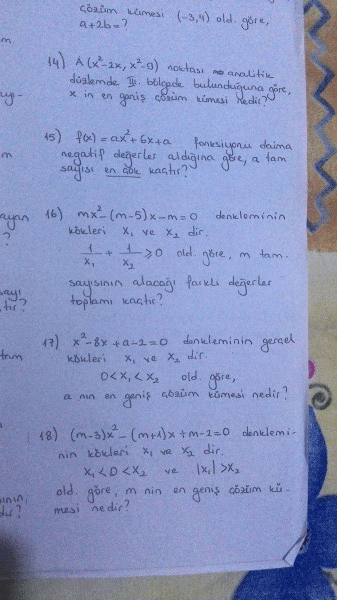 çözüm kümesi (-3,4) old. göre,
a+2b=?
14) A(x²-2x, x²-9) noktası analitik
düzlemde III. bölgede bulunduğuna göre,
x in en geniş çözüm kümesi nedir?
15) f(x)=ax²+6x+a fonksiyonu daima
negatif değerler aldığına göre, a tam
sayısı en çok kaçtır?
16) mx²-(m-5)x-m=0 denkleminin
kökleri x₁ ve x₂ dir.
1/x₁ + 1/x₂ ≥0 old. göre, m tam.
sayısının alacağı farklı değerler
toplamı kaçtır?
17) x²-8x+a-2=0 denkleminin gerçel
kökleri x₁ ve x₂ dir.
0<x₁<x₂ old. göre,
a nın en geniş çözüm kümesi nedir?
18) (m-3)x²-(m+1)x+m-2=0 denklemi-
nin kökleri x₁ ve x₂ dir.
x₁<0<x₂ ve |x₁|>x₂
old. göre, m nin en geniş çözüm kü-
mesi nedir?